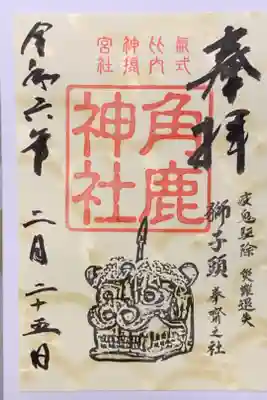 奉拝
疫鬼駆除 退失
獅子頭 奉齋之社
氣比神宮
式内摂社
角鹿
神社
令和六年 二月二十五日